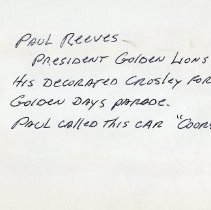 Paul Reeves—
President Golden Lions
His decorated Crosley for
Golden Days Parade.
Paul called this car "Coors